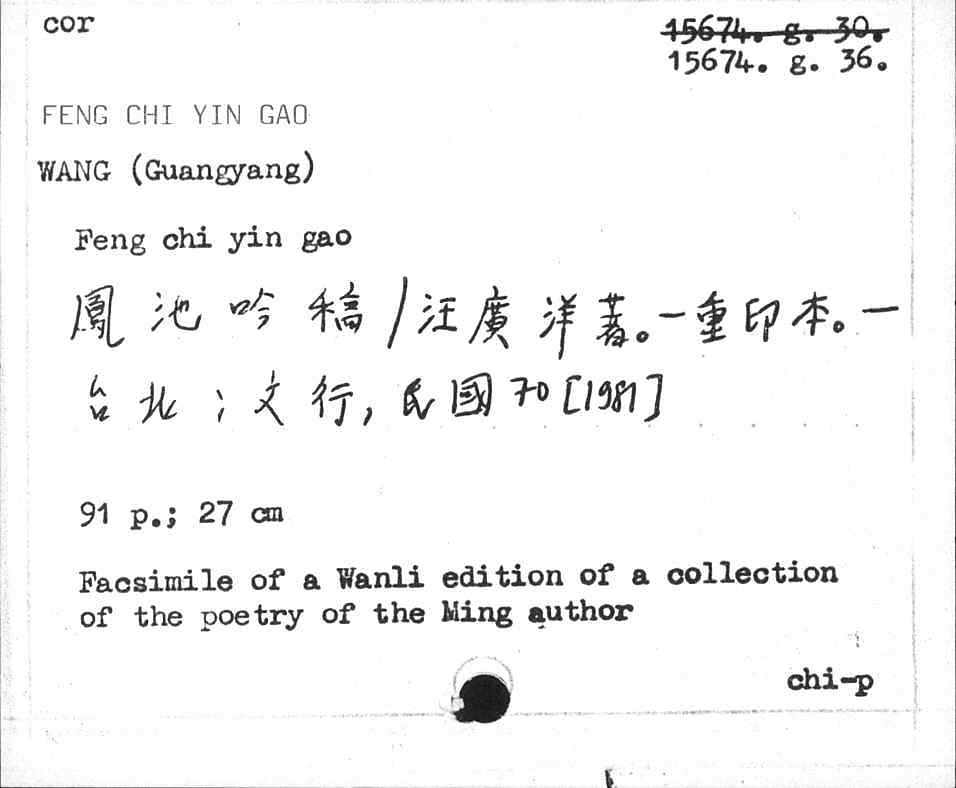 cor
15674. g. 30.
15674. g. 36.
FENG CHI YIN GAO
WANG (Guangyang)
Feng chi yin gao
鳳池吟稿/汪廣洋著。一重印本。一
台北;文行,民國70[1981]
91 p.; 27 cm
Facsimile of a Wanli edition of a collection
of the poetry of the Ming author
chi-p